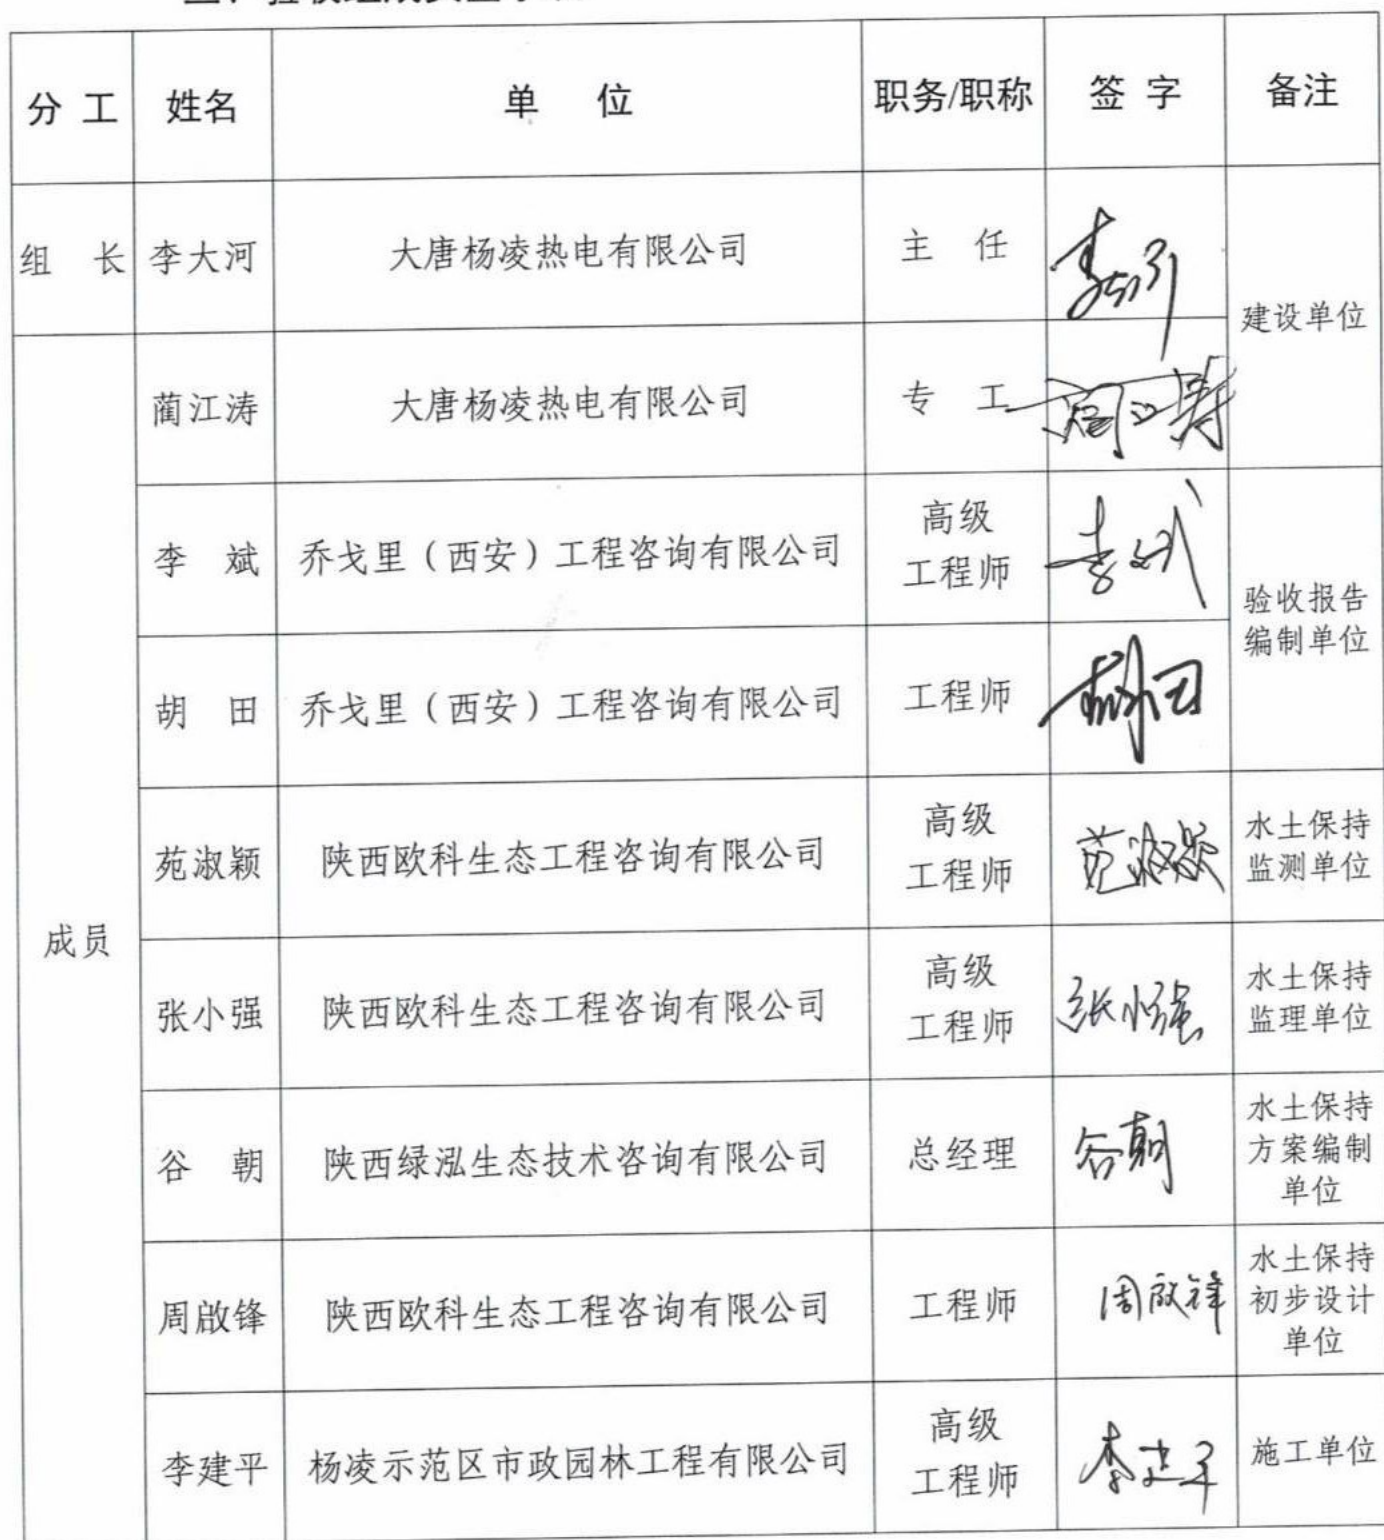 三、验收组成员签字表
分工 姓名 单 位 职务/职称 签 字 备注
组 长 李大河 大唐杨凌热电有限公司 主 任 建设单位
成员
蔺江涛 大唐杨凌热电有限公司 专 工 蔺江涛
李 斌 乔戈里（西安）工程咨询有限公司 高级
工程师 李斌
验收报告
编制单位
胡 田 乔戈里（西安）工程咨询有限公司 工程师 胡田
苑淑颖 陕西欧科生态工程咨询有限公司 高级
工程师 苑淑颖
水土保持
监测单位
张小强 陕西欧科生态工程咨询有限公司 高级
工程师 张小强
水土保持
监理单位
谷 朝 陕西绿泓生态技术咨询有限公司 总经理 谷朝
水土保持
方案编制
单位
周啟锋 陕西欧科生态工程咨询有限公司 工程师 周啟锋
水土保持
初步设计
单位
李建平 杨凌示范区市政园林工程有限公司 高级
工程师 李建平
施工单位